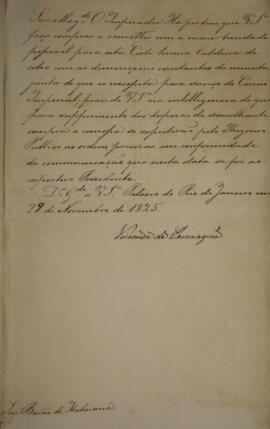 Sua Mag.de O Imperador Ha por bem que V. S.ª
faça comprar e remetter com a maior brevidade
possivel para esta Corte huma Caldeira de
cobre com as dimensoens constantes da minuta
junta de que se necessita para serviço da
Imperial, ficando V. S.ª na intelligencia de que
para suprimento das despezas de semelhante
compra e remessa se expedirão pelo Thesouro
Publico as ordens precisas em conformidade
da communicação que nesta data se faz ao
respectivo Presidente.
D.s G.de a V. S.ª Palacio do Rio de Janeiro em
29 de Novembro de 1825.
Visconde de Paranaguá
Snr. Barão de Itabaiana.